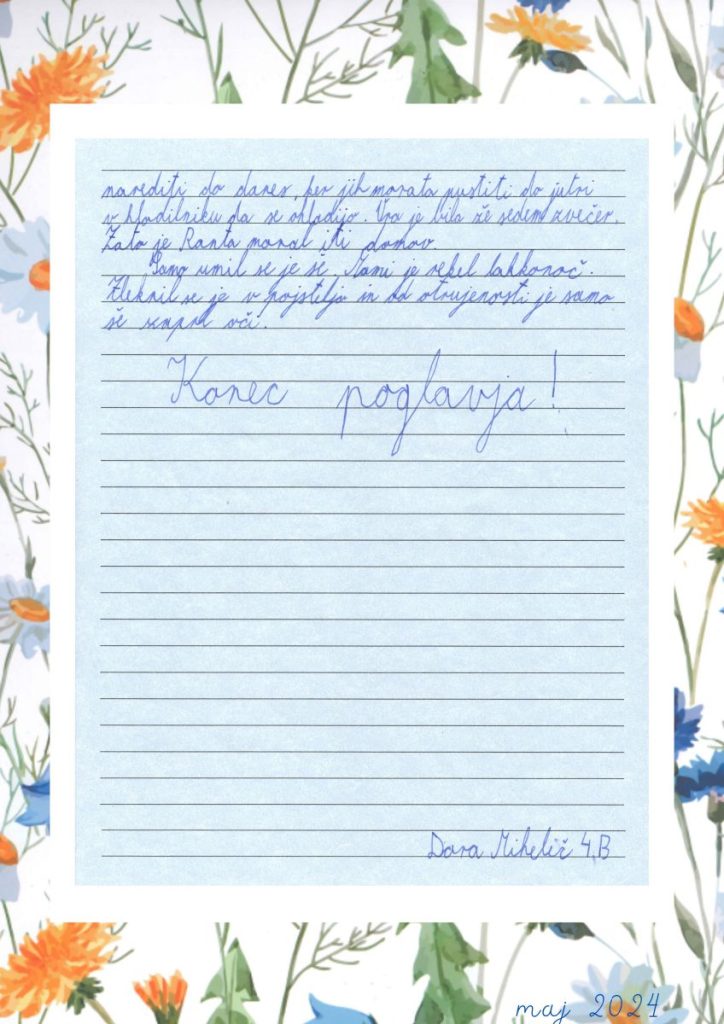 narediti do danes, ker jih morata pustiti do jutri
v hladilniku da se ohladijo. Ura je bila že sedem zvečer.
Zato je Ranta moral iti domov.
Samo umil se je še, Mami je rekel lahkonoč.
Zleknil se je v pojstiljo in od otrujenosti je samo
še zaprl oči.
Konec poglavja!
Dora Mihelič 4.B
maj 2024